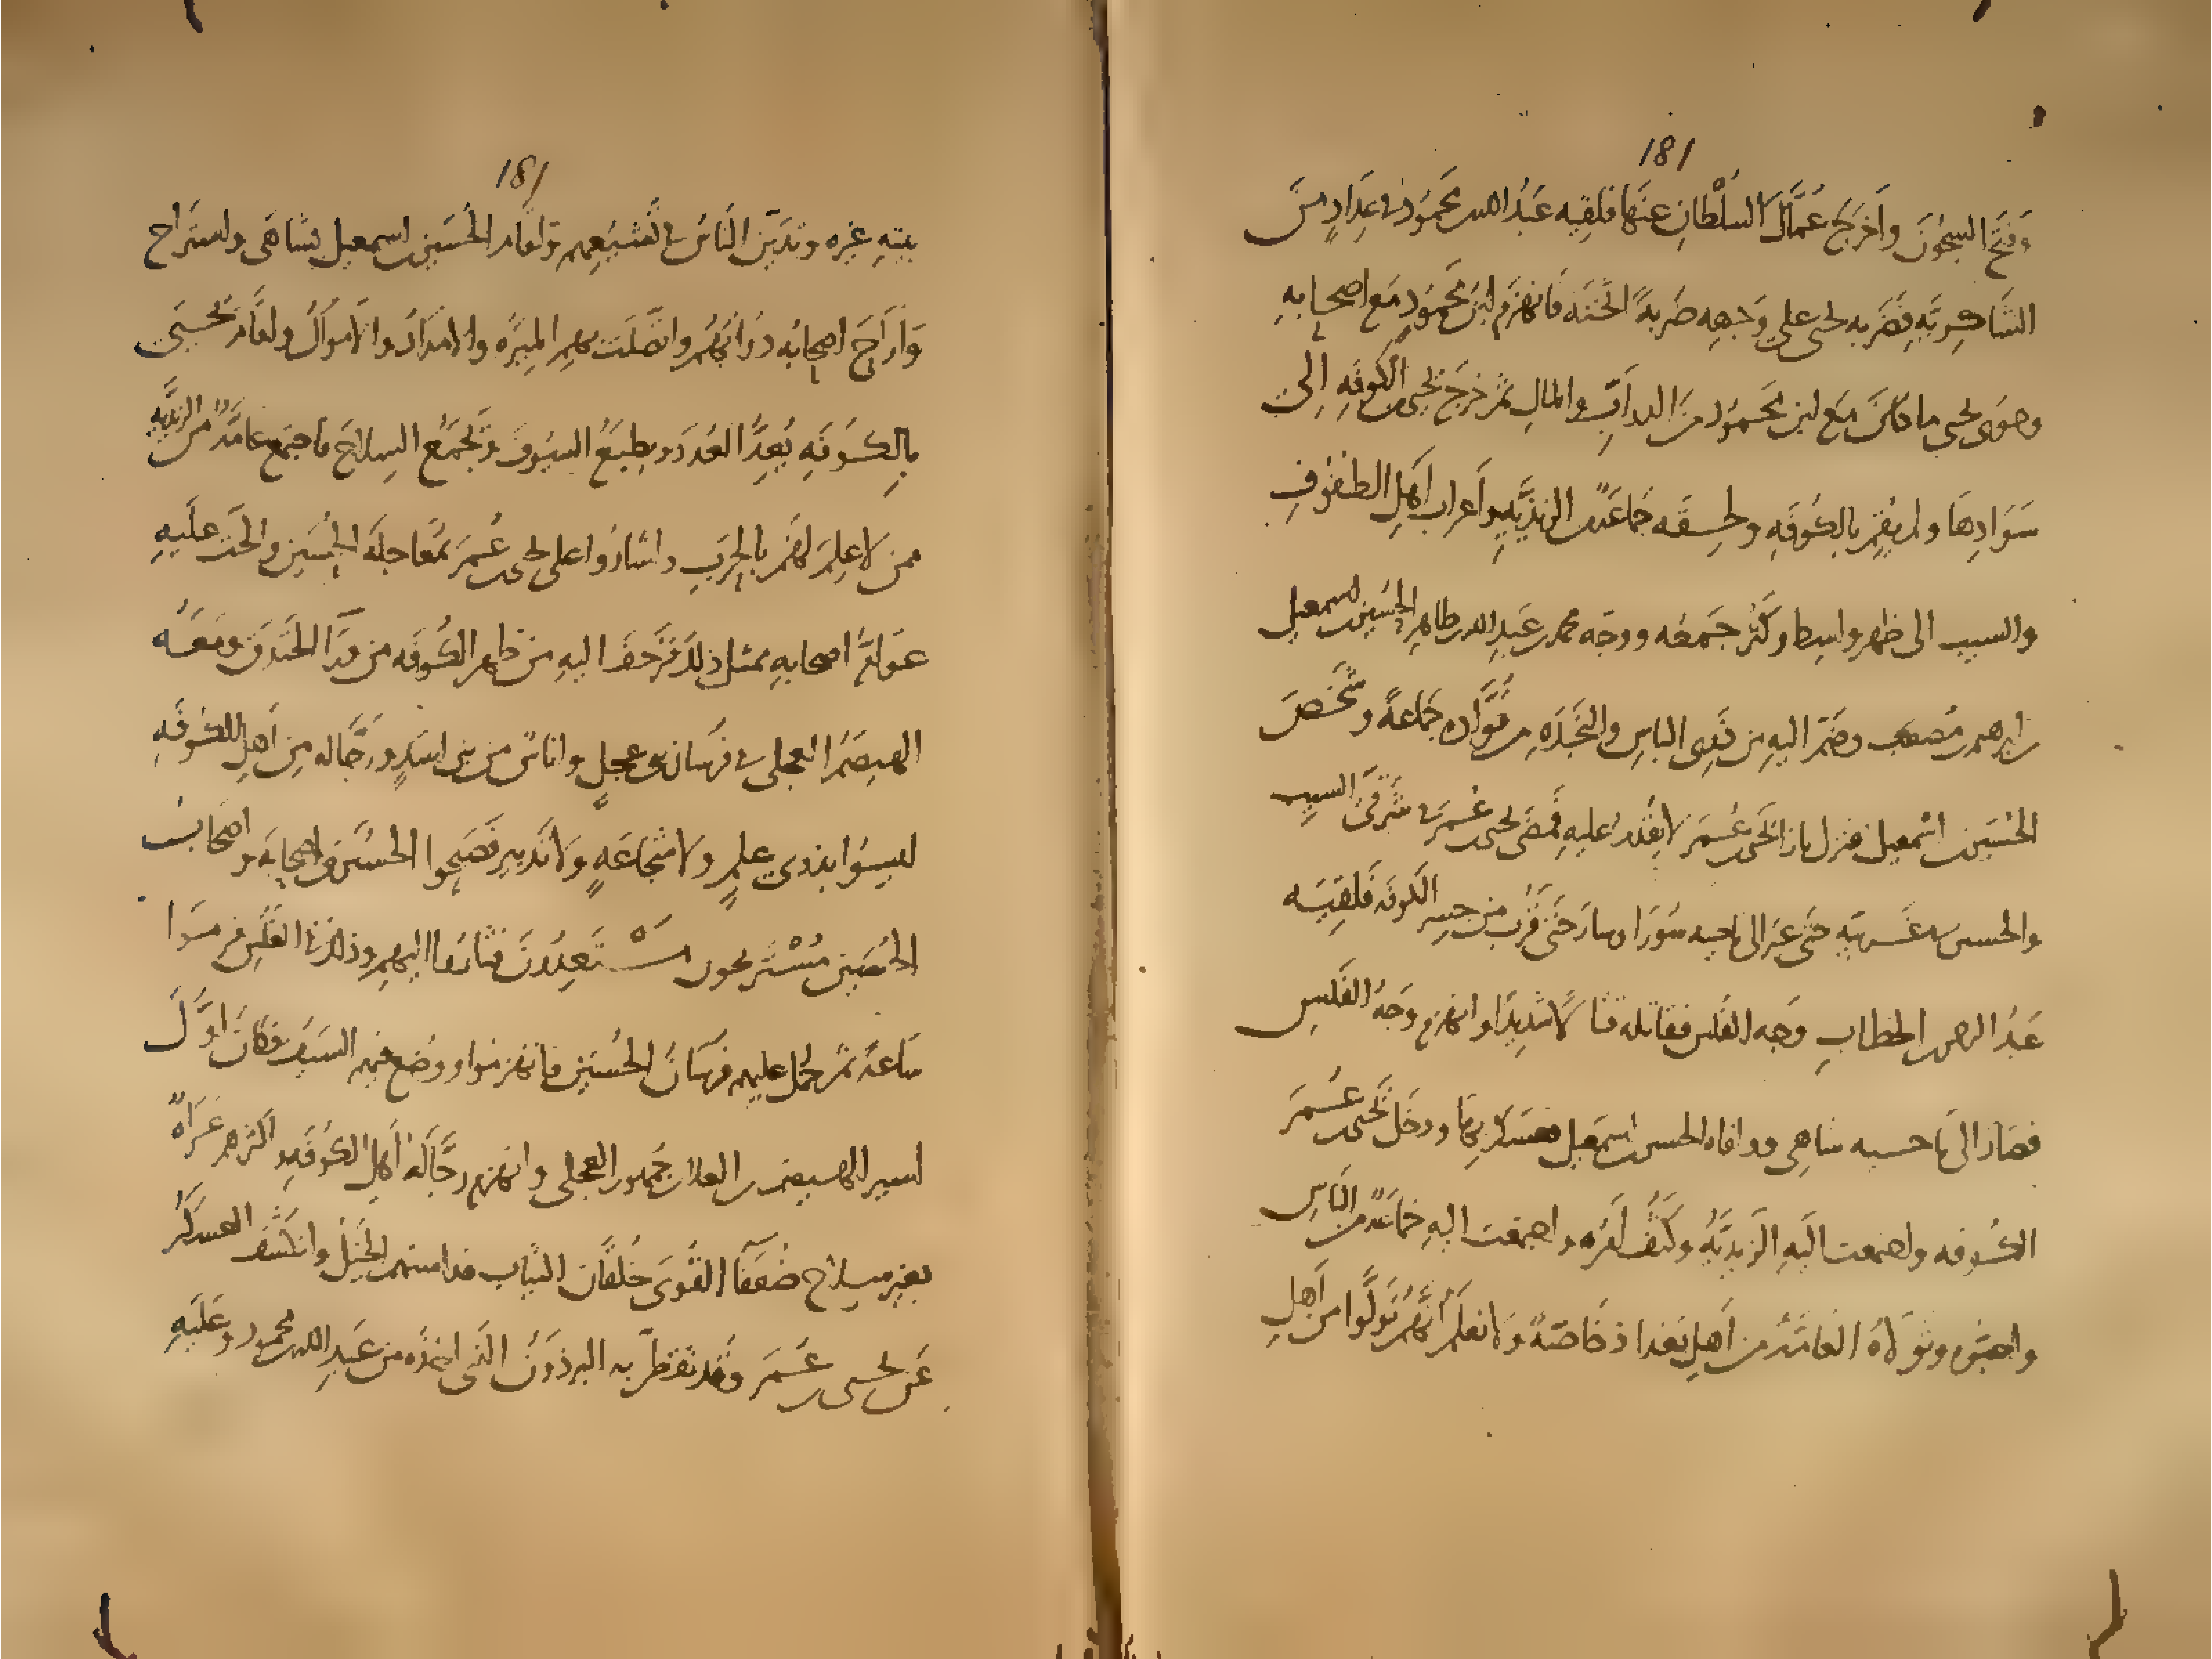 181
وَفَتَحَ السجُونَ وأَخرَجَ عُمَّالَ السُلْطانِ عَنهَا فلقيه عَبْدُ الله بن محمُود في عِدَادٍ مِنَ
الشَّاكِريَّهِ فضَرَبه يحيى على وَجهِه ضَربةً اثخَنَه فَانهزَم ابن محمُودٍ مَع اصحابهِ
وحوَى يحيى ما كانَ مَع ابن محمُود منَ الدوابّ والمالِ ثمّ خرَجَ يحيى من الكوفَهِ إلى
سَوَادِهَا ولم يُقِم بالكُوفَهِ ولحِقَه جَمَاعَةٌ من الزيديَّهِ وأعراب أهلِ الطفُوفِ
والسيب الى ظهر واسط وكَثُر جَمعُه ووجّه محمد بن عَبدِ الله بن طاهِر الحُسَين بن اسمعيل
بن ابرهيم بن مُصعَب وضَمَّ اليهِ من ذَوِي الباسِ والنَجدَهِ من قُوَّاده جَمَاعةً وشَخَصَ
الحُسَين بن اسمعيل فنزل بازا يحيى بن عُمَر لا يقدُر عليهِ فمَضَى يحيى بن عُمَر في شَرقىّ السيب
والحسين في غَربيّهِ حتّى عبَر الى ناحيه سُورَا وسَارَ حَتَّى قَرُب من جسر الكوفَه فَلَقِيَه
عَبْدُ الرحمن بن الخطابِ وَجه الفَلْس فقاتله قتالًا شَدِيدًا وانهزم وَجهُ الفَلْسِ
فصَارَ الى نَاحيه شاهى فوافاه الحسين بن اسمَعِيل فعَسكَر بِهَا ودخَل يَحيَى بن عُمَرَ
الكُوفه واجتمعت اليَهِ الزَيديَّهُ وكَثُفَ أَمرُه واجتمعت اليهِ جَمَاعَةٌ من النَاسِ
واحبّوه وتَوَلّاهُ العَامَّهُ من أهلِ بَغداذ خَاصَّةً ولا نعلَم أَنَّهُم تَولَّوا من أَهلِ
181
بيتهِ غيره وتَدَيّنَ الناسُ في تَشيعِهم وَاقام الحُسَين بن اسمعيل بشاهَى واستَرَاح
وَأَرَاحَ اصحابُه دَوابّهُم واتّصَلَت بهم المِيَرَه والامدَادُ والامَوالُ واقَام يَحيَى
بالكُوفَهِ يُعِدّ العُدَدَ ويطبَعُ السيُوفَ ويَجمَعُ السِلاحَ فاجتمع عامَّةٌ من الزيديّهِ
ممن لا عِلمَ لهُم بالحَربِ واشَارُوا على يحيى بن عُمَرَ بمُعَاجَلَه الحُسَين والَحّت عليهِ
عَوَامّ اصحابهِ بمثل ذلك فزَحَفَ اليهِ من ظهر الكُوفَه من ورَا الخَندَق ومَعَه
الهيصَم العجلى في فرسَان بنى عجلٍ واناسٌ من بنى اسَدٍ ورَجّاله من أهلِ الكُوفَهِ
ليسُوا بذوى علمٍ ولا شجَاعَهٍ ولا تَدبير فصَبّحوا الحسَين واصحابَه واصحَابُ
الحُسَين مُسْتَريحون مسْتَعِدّونَ فثَارُوا اليهم وذلك في الغَلَس فرمَوا
ساعَةً ثمّ حمَل عليهم فرسَانُ الحُسَين فانهزمُوا ووُضع فيهم السَيفُ فكانَ اوَّلَ
اسير الهيصَم بن العلا بن جُمهور العجلى وانهزم رَجَّالَهُ أهلِ الكُوفَهِ واكثرهم عُرَاهٌ
بغير سلاح ضُعَفَآ القُوَى خُلقَانَ الثيَاب فداستهم الخَيلُ وانكشَفَ العسكرُ
عَن يحيى بن عُمَرَ وقَد تقطّر به البرذَونُ الذى اخَذَه من عَبدِ الله بن محمود وعَلَيهِ